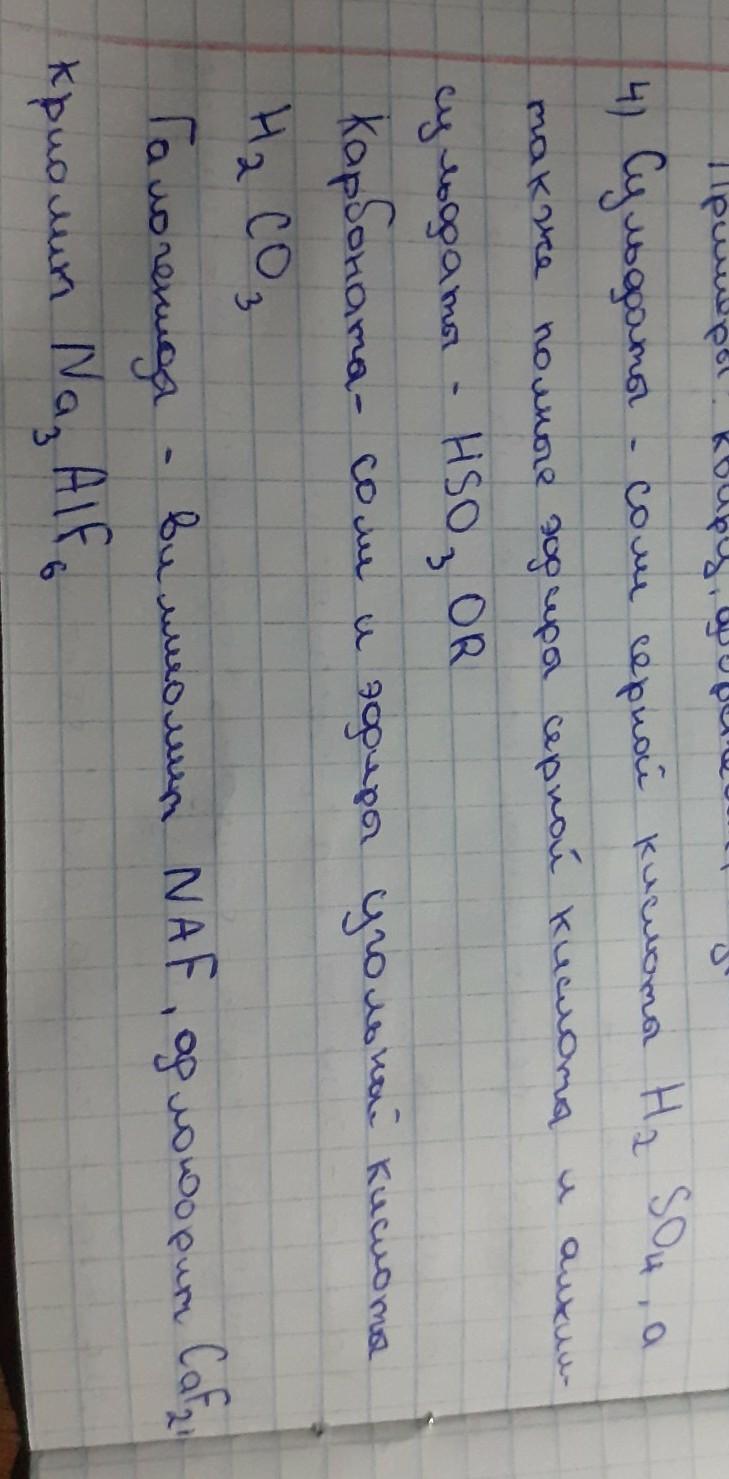 Примеры: кварц,
4) Сульфаты - соли серной кислоты H₂SO₄, а
также полные эфира серной кислота и алкил-
сульфаты - HSO₃OR
Карбоната - соли и эфиры угольной кислоты
H₂CO₃
Галогенида - виллиомит NAF, флоюорит CaF₂,
криолит Na₃AlF₆